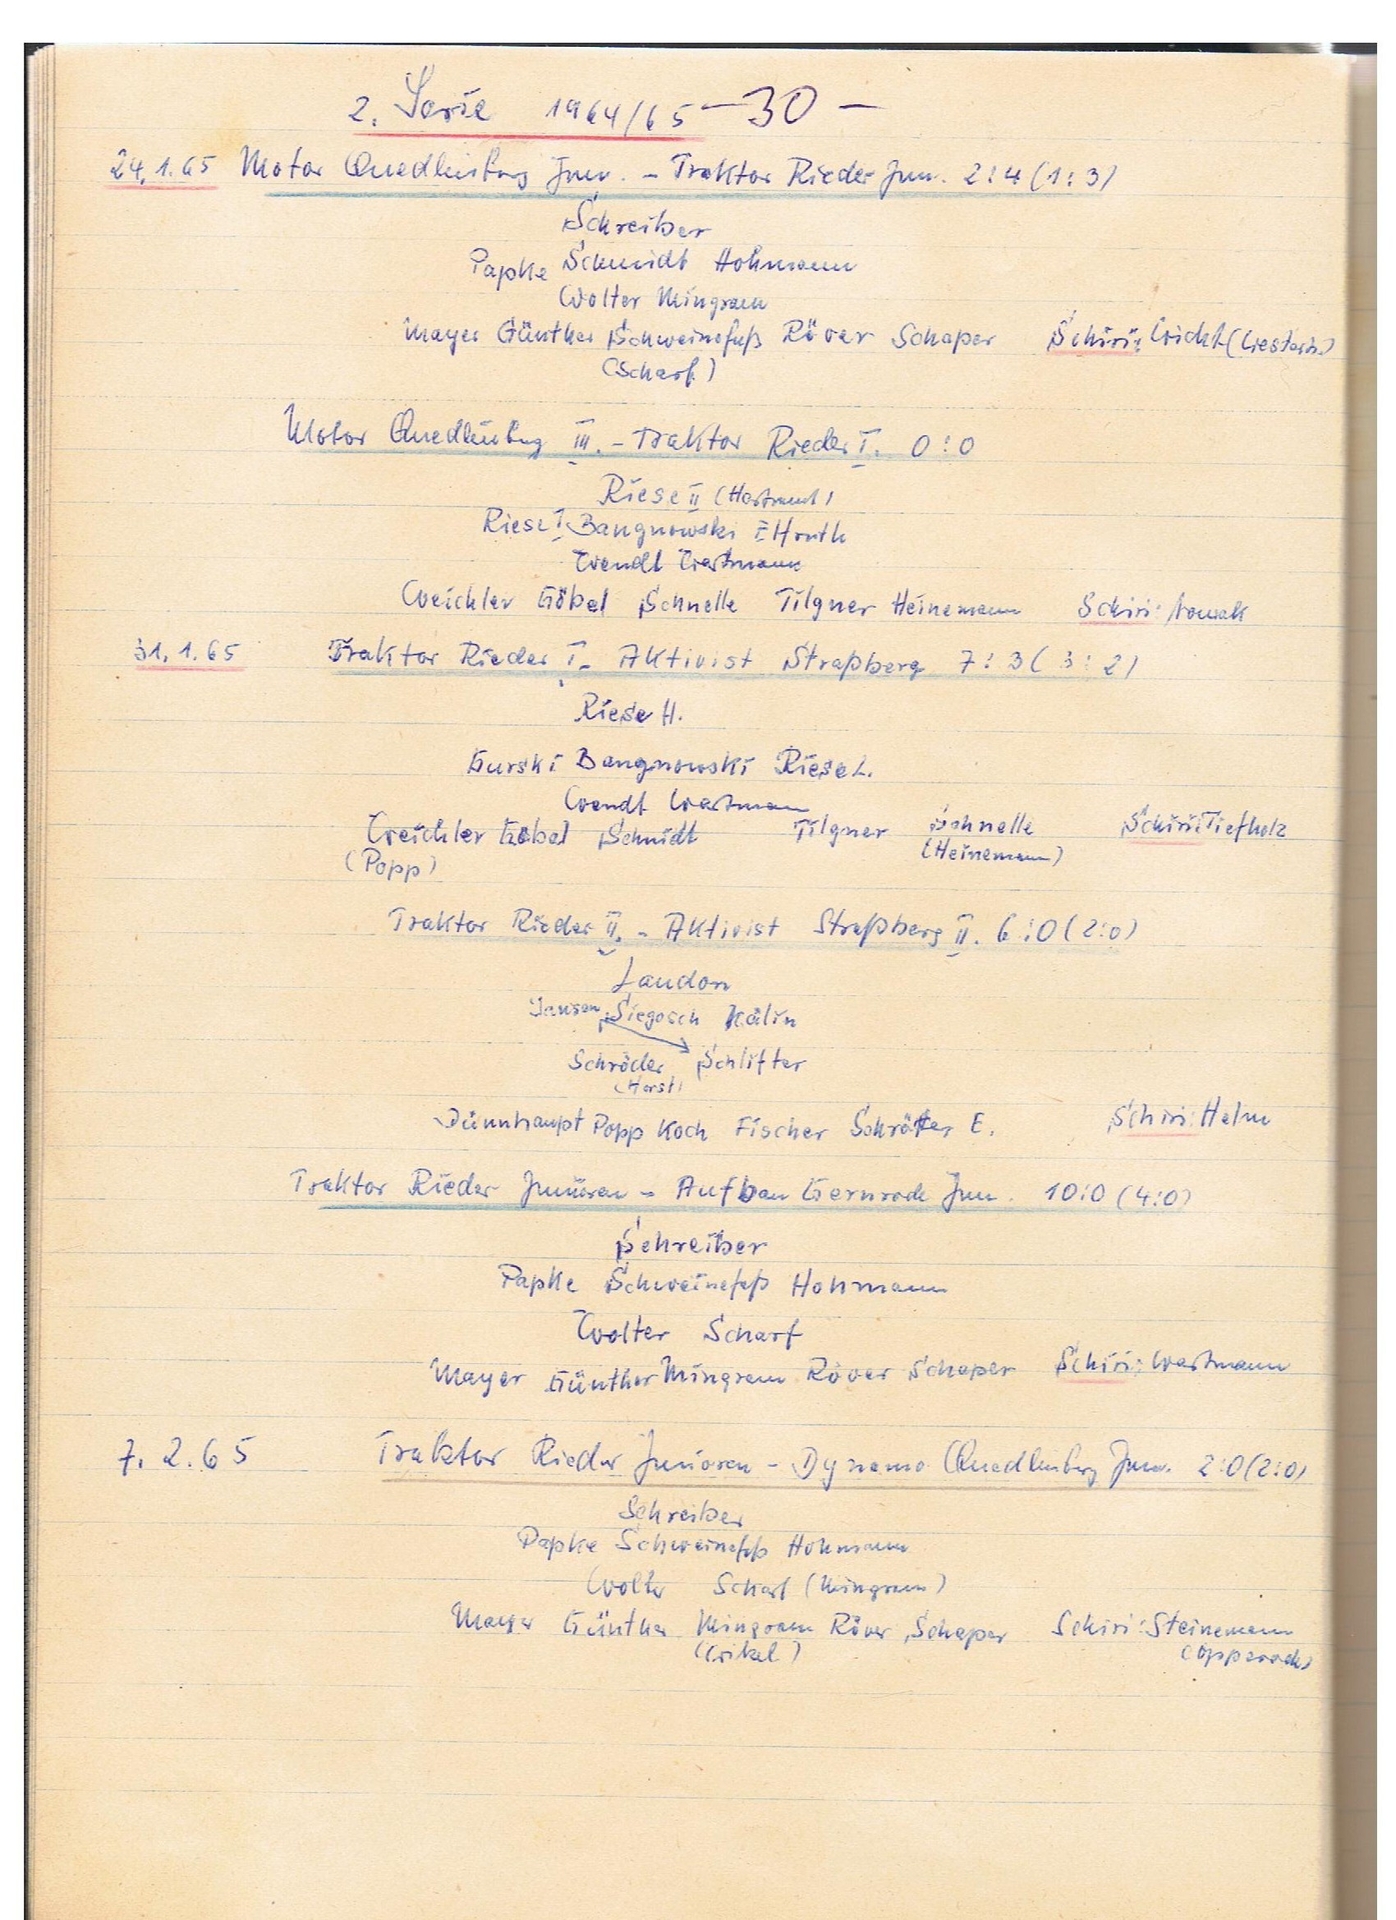 2. Serie 1964/65 - 30 -
24.1.65 Motor Quedlinburg Jun. - Traktor Rieder Jun. 2:4 (1:3)
Schreiber
Papke Schmidt Hohmann
Wolter Mingram
Mayer Günther Schweinefuß Röver Schaper Schiri:
(Scharf)
Motor Quedlinburg III. - Traktor Rieder I. 0:0
Riese II
Riese I. Bangnowski
Wendt Wartmann
Weichler Göbel Schnelle Tilgner Heinemann Schiri: Nowak
31.1.65 Traktor Rieder I. - Aktivist Straßberg 7:3 (3:2)
Riese H.
Gurski Bangnowski Riese L.
Wendt Wartmann
Weichler Göbel Schmidt Tilgner Schnelle Schiri: Tiefholz
(Popp) (Heinemann)
Traktor Rieder II. - Aktivist Straßberg II. 6:0 (2:0)
Laudon
Jansen Siegosch Kälin
Schröder Schlifter
(Horst)
Dünnhaupt Popp Koch Fischer Schröter E. Schiri: Helm
Traktor Rieder Junioren - Aufbau Gernrode Jun. 10:0 (4:0)
Schreiber
Papke Schweinefuß Hohmann
Wolter Scharf
Mayer Günther Mingram Röver Schaper Schiri: Wartmann
7.2.65 Traktor Rieder Junioren - Dynamo Quedlinburg Jun. 2:0 (2:0)
Schreiber
Papke Schweinefuß Hohmann
Wolter Scharf (Mingram)
Mayer Günther Mingram Röver Schaper Schiri: Steinemann